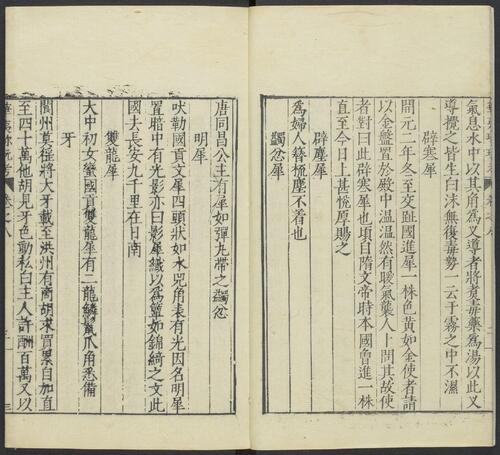 氣息水中以其角為乂導者將煑毒藥為湯以此乂
導攪之皆生白沫無復毒勢一云于霧之中不濕
辟寒犀
開元二年冬至交趾國進犀一株色黃如金使者請
以金盤置於殿中温温然有暖氣襲人上問其故使
者對曰此辟寒犀也頃自隋文帝時本國曾進一株
直至今日上甚悦厚賜之
辟塵犀
為婦人簮梳塵不着也
蠲忿犀
唐同昌公主有犀如彈丸帶之蠲忿
明犀
吠勒國貢文犀四頭狀如水兕角表有光因名明犀
置暗中有光影亦曰影犀織以為簟如錦綺之文此
國去長安九千里在日南
雙龍犀
大中初女蠻國貢雙龍犀有二龍鱗鬣爪角悉備
牙
閬州莫徭將大牙載至洪州有商胡求買累自加直
至四十萬他胡見牙色動私白主人許酬百萬又以